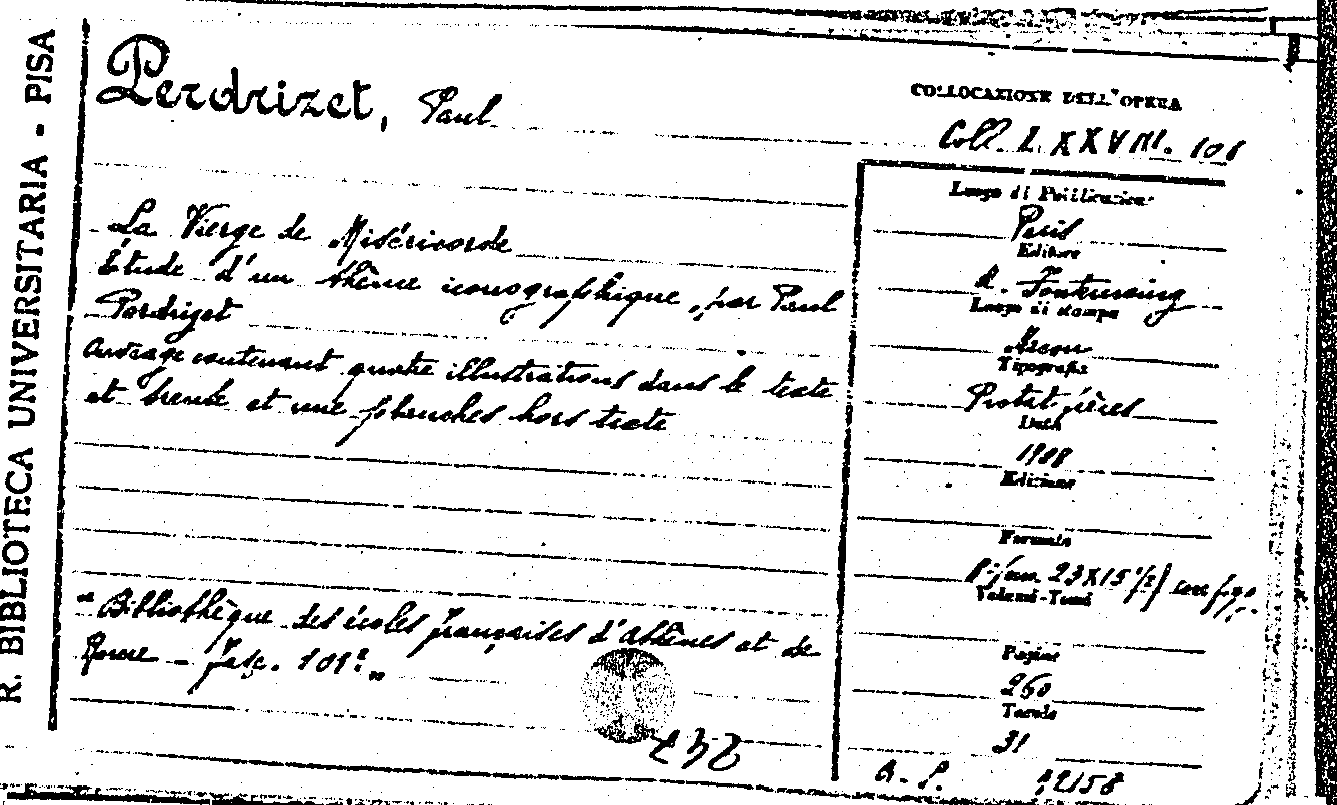 R. BIBLIOTECA UNIVERSITARIA - PISA
Perdrizet, Paul
COLLOCAZIONE DELL'OPERA
Coll. L. XXVIII. 101
La Vierge de Miséricorde
Étude d'un thème iconographique, par Paul
Perdrizet
Ouvrage contenant quatre illustrations dans le texte
et trente et une planches hors texte
"Bibliothèque des écoles françaises d'Athènes et de
Rome - Fasc. 101º"
242
Luogo di Pubblicazione
Paris
Editore
A. Fontemoing
Luogo di stampa
Macon
Tipografia
Protat frères
Data
1908
Edizione
Formato
23X15 1/2) con figg.
Volumi-Tomi
Pagine
260
Tavole
31
12158